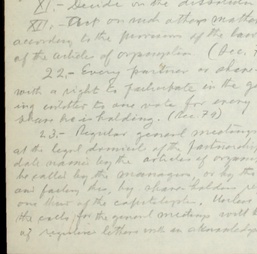 XI.- Decide on the dissolution
XII.- Act on such other matters
according to the provision of the law
of the articles of organization (Dec.
22.- Every partner or share
with a right to participate in the ge
ing entitled to one vote for every
share he is holding. (Dec. 79)
23.- Regular general meetings
at the legal domicile of the partnership
date named by the articles of organiz
be called by the managers, or by the
by share holders re
one third of the capital
the calls for the general meetings will b
of registered letters with an acknowledg